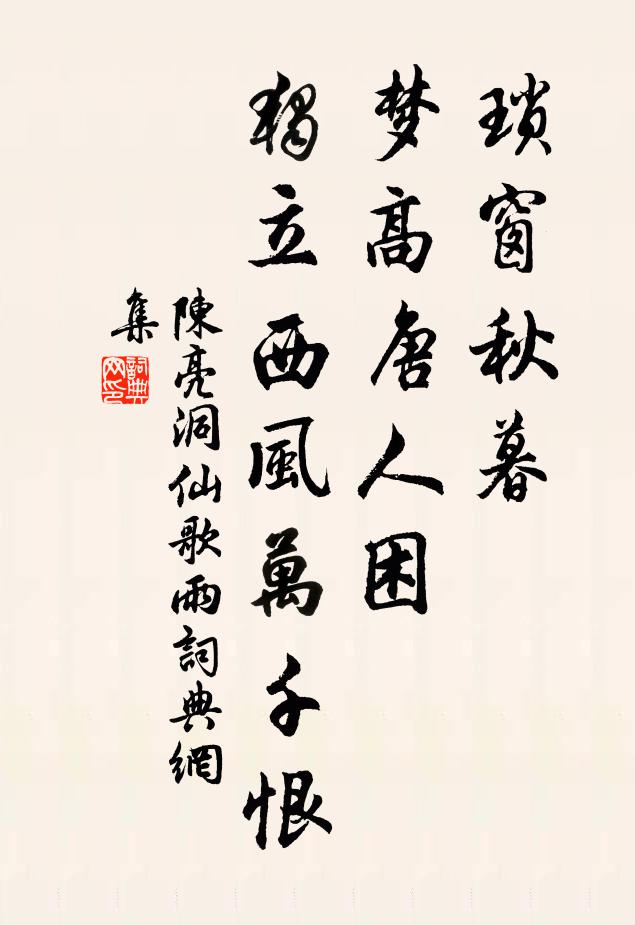 瑣窗秋暮
梦高唐人困
獨立西風萬千恨
陳亮洞仙歌雨詞典網
集
詞典
网印